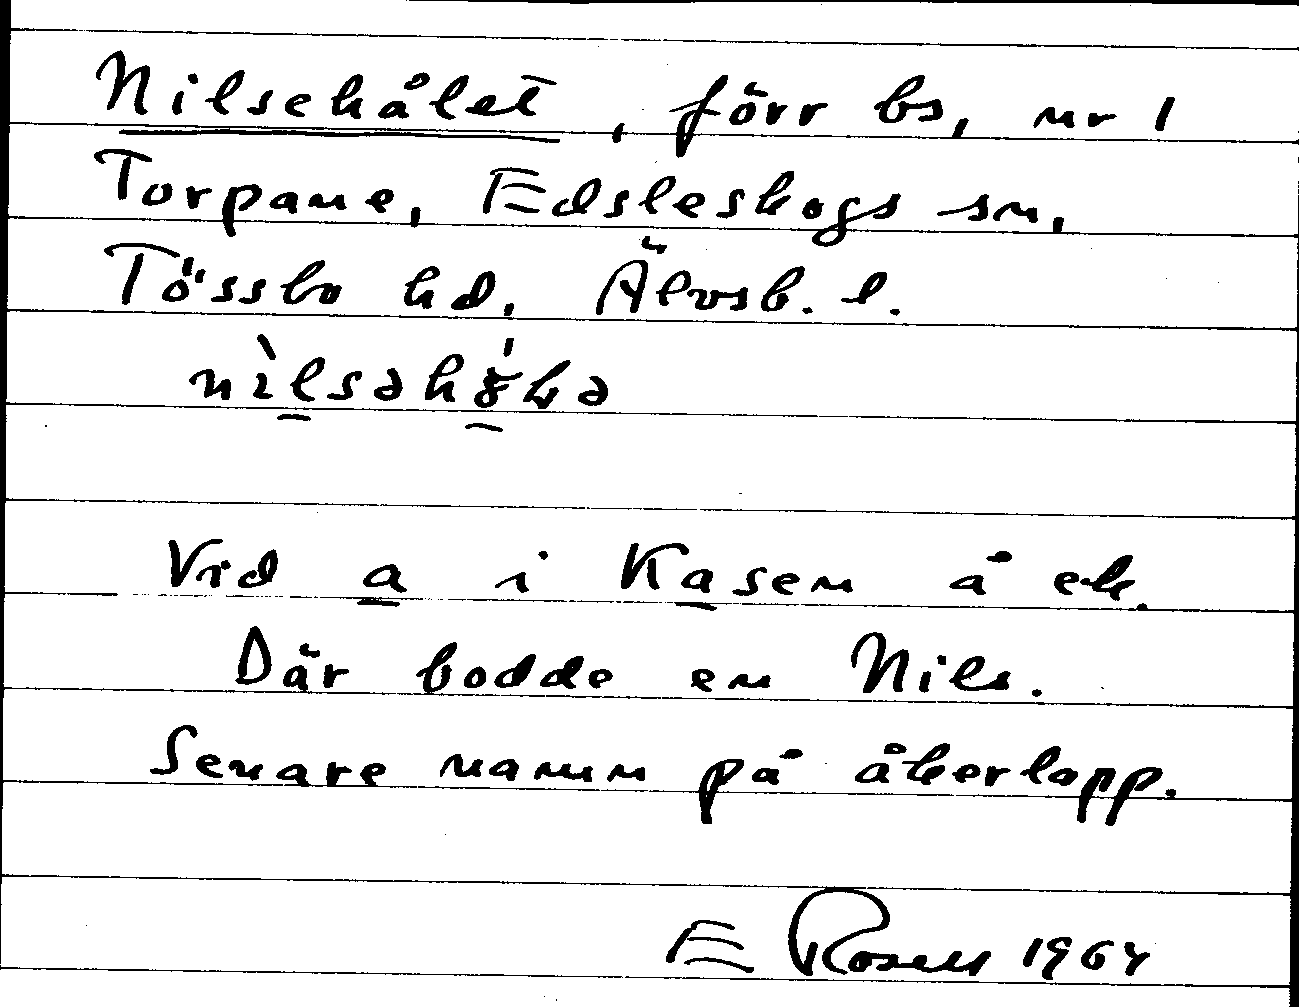 Nilsehålet, förr bs, nr 1
Torpane, Edsleskogs sn,
Tössbo hd, Älvsb. l.
Vid a i Kasen å ek.
Där bodde en Nils.
Senare namn på åkerlapp.
E Rosell 1964